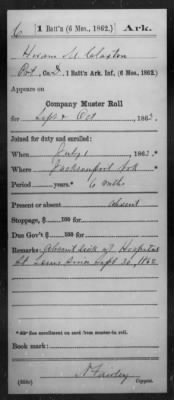 C | 1 Batt's (6 Mos., 1862.) | Ark.
Hiram M Claxton
Pvt, Co. D, 1 Batt's Ark. Inf. (6 Mos., 1862.)
Appears on
Company Muster Roll
for Sept & Oct, 1862.
Joined for duty and enrolled:
When July 1, 1862.*
Where Jacksonport Ark
Period 6 mths
Present or absent Absent
Stoppage, $ 100 for
Due Gov't $ 100 for
Remarks: Absent sick at Hospital
St Louis since Sept 30, 1862
*See enrollment on card from muster-in roll.
Book mark:
Copyist.